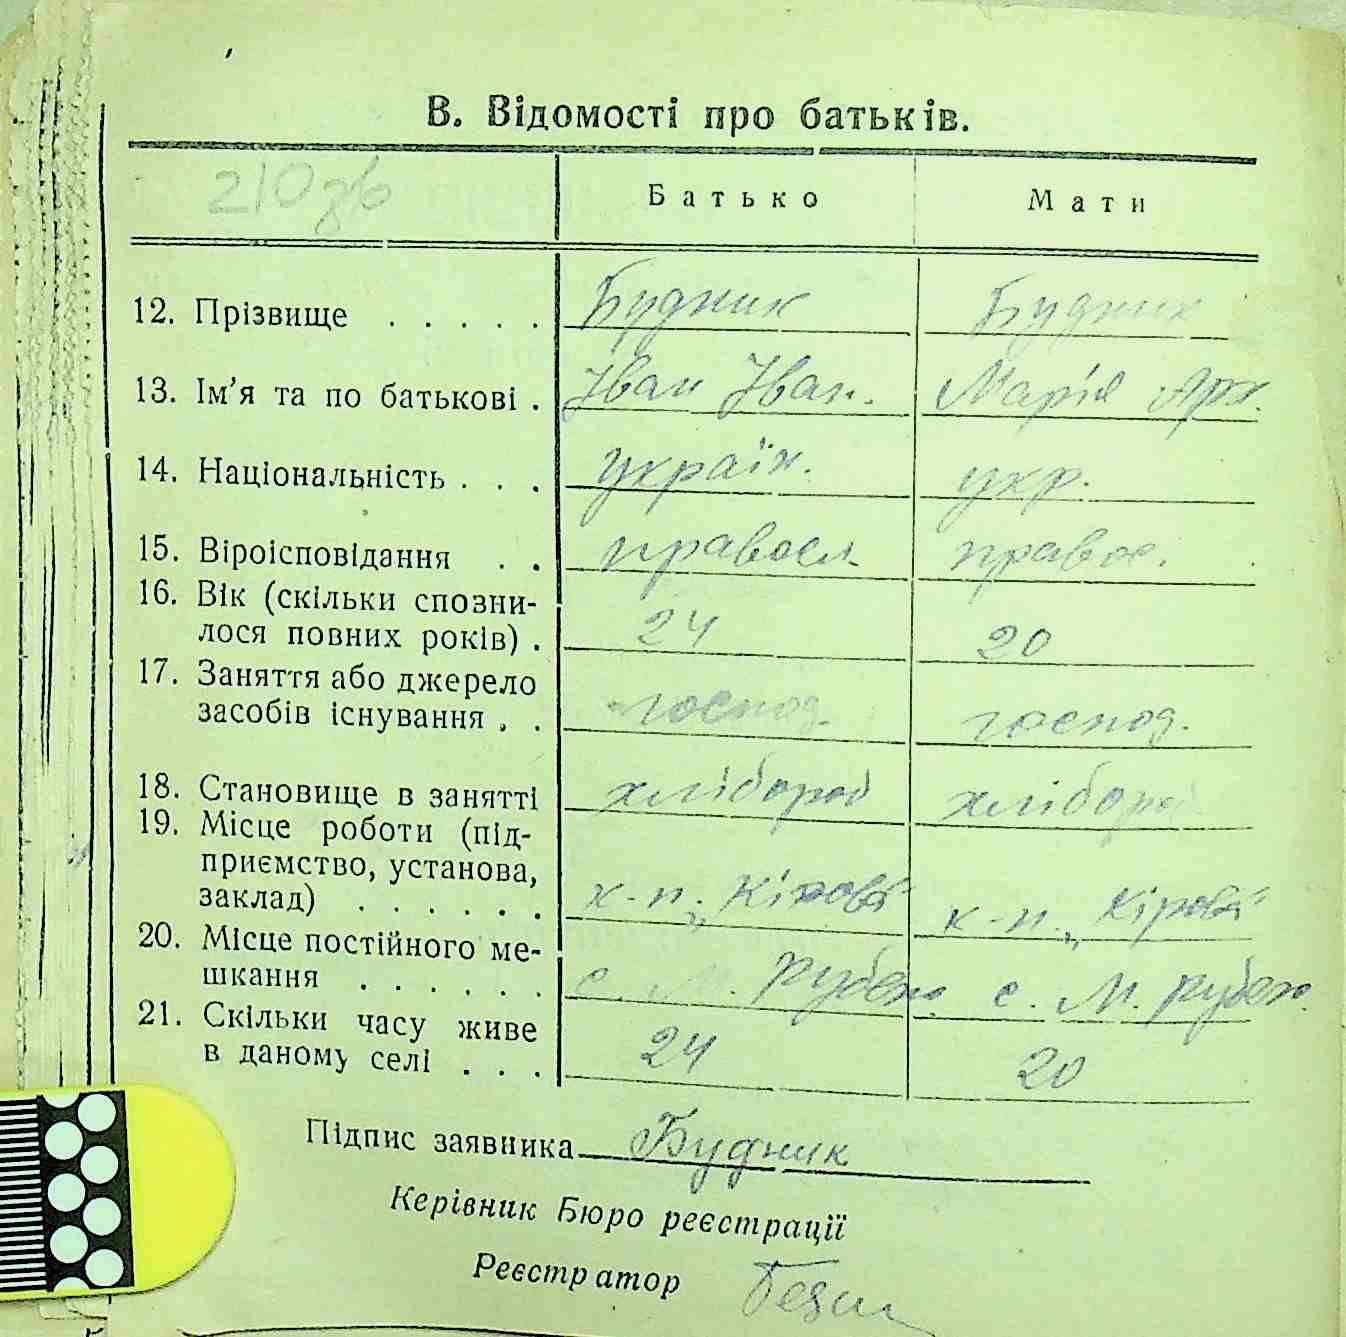 В. Відомості про батьків.
210 зв
Батько Мати
12. Прізвище . . . . . Будник Будник
13. Ім'я та по батькові . Іван Іван. Марія Арх.
14. Національність . . . україн. укр.
15. Віроісповідання . . правосл. правос.
16. Вік (скільки спозни-
лося повних років) . 24 20
17. Заняття або джерело
засобів існування . . господ. господ.
18. Становище в занятті хлібороб хлібороб
19. Місце роботи (під-
приємство, установа,
заклад) . . . . . . к-п. „Кірова" к-п. „Кірова"
20. Місце постійного ме-
шкання . . . . . . с. М. Рубеж. с. М. Рубеж.
21. Скільки часу живе
в даному селі . . . 24 20
Підпис заявника Будник
Керівник Бюро реєстрації
Реєстратор